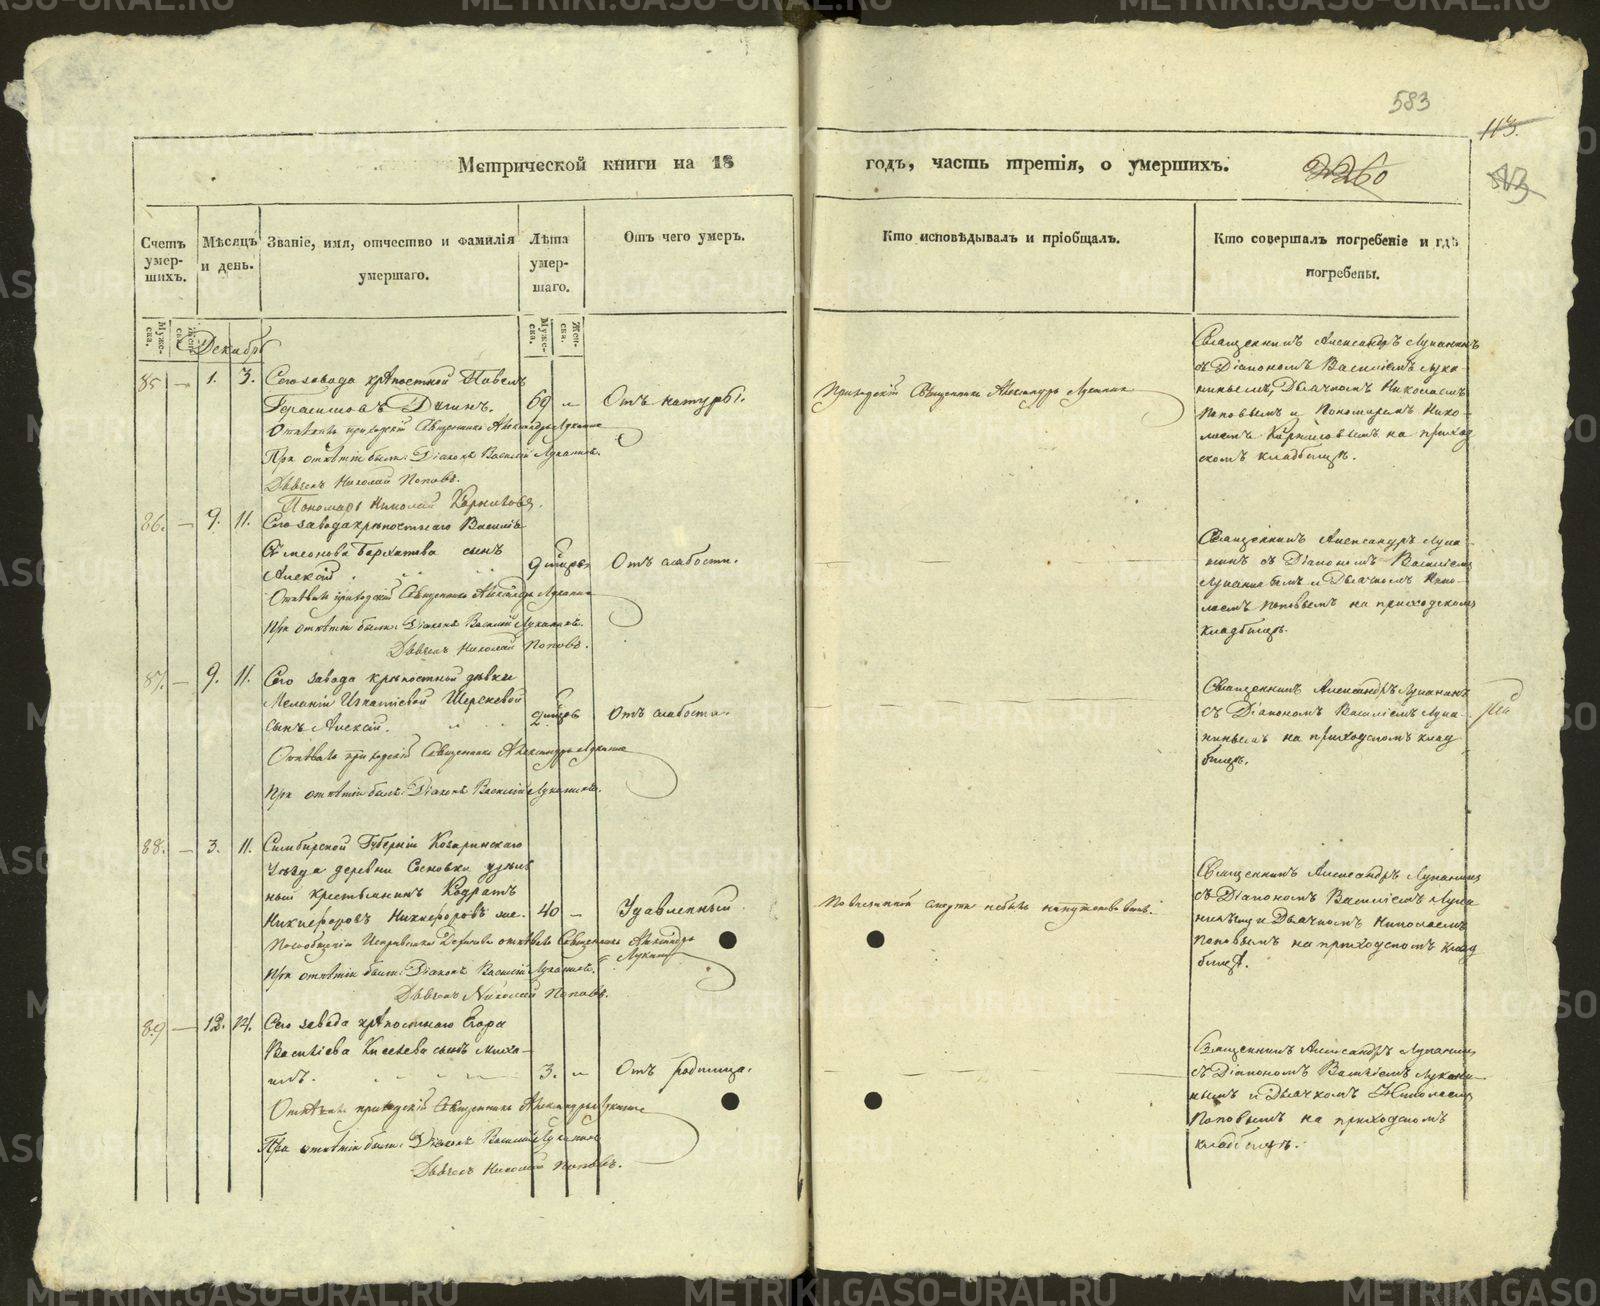 583
113.
Метрической книги на 18
годъ, часть третія, о умершихъ.
Счетъ умер-шихъ.
Мѣсяцъ и день.
Званіе, имя, отчество и фамилія умершаго.
Лѣта умер-шаго.
Отъ чего умеръ.
Кто исповѣдывалъ и пріобщалъ.
Кто совершалъ погребеніе и гдѣ погребены.
Муже-ска.
Жен-ска.
Муже-ска.
Жен-ска.
Декабрь
85 — 1. 3. Сего завода крѣпостной Павелъ
Герасимовъ 69 „ Отъ натуры.
Отпѣвалъ приходскій Священникъ Александръ Луканинъ
При отпѣтіи были: Діаконъ Василій Луканинъ.
Дьячекъ Николай Поповъ.
Пономарь Николай
Приходскій Священникъ Александръ Луканинъ
Священникъ Александръ Луканинъ
съ Діакономъ Василіемъ Лука-
нинымъ, Дьячкомъ Николаемъ
Поповымъ и Пономаремъ Нико-
лаемъ на приход
скомъ кладбищѣ.
86. — 9. 11. Сего завода крѣпостнаго Василія
Симеонова сынъ
Алексій. Отъ слабости.
Отпѣвалъ приходскій Священникъ Александръ Луканинъ
При отпѣтіи были: Діаконъ Василій Луканинъ.
Дьячекъ Николай Поповъ.
Священникъ Александръ Лука-
нинъ съ Діакономъ Василіемъ
Луканинымъ и Дьячкомъ Нико-
лаемъ Поповымъ на приходскомъ
кладбищѣ.
87. — 9. 11. Сего завода крѣпостной дѣвки
Меланіи Игнатіевой
сынъ Алексій. Отъ слабости.
Отпѣвалъ приходскій Священникъ Александръ Луканинъ
При отпѣтіи былъ: Діаконъ Василій Луканинъ.
Священникъ Александръ Луканинъ
съ Діакономъ Василіемъ Лука-
нинымъ на приходскомъ клад
бищѣ.
88. — 3. 11. Симбирской Губерніи
Уѣзда деревни Сосновки удѣль
ный крестьянинъ Кодратъ
Никифоровъ Никифоровъ же. 40 — Удавленный
отпѣвалъ Священникъ Александръ
Луканинъ
При отпѣтіи были: Діаконъ Василій Луканинъ.
Дьячекъ Николай Поповъ.
Священникъ Александръ Луканинъ
съ Діакономъ Василіемъ Лука
нинымъ и Дьячкомъ Николаемъ
Поповымъ на приходскомъ клад
бищѣ.
89 — 12. 14. Сего завода крѣпостнаго Егора
Васильева Киселева сынъ Миха-
илъ. 3. „ Отъ родимца.
Отпѣвалъ приходскій Священникъ Александръ Луканинъ
При отпѣтіи были: Діаконъ Василій Луканинъ
Дьячекъ Николай Поповъ.
Священникъ Александръ Луканинъ
съ Діакономъ Василіемъ Лукани-
нымъ и Дьячкомъ Николаемъ
Поповымъ на приходскомъ
кладбищѣ.
METRIKI.GASO-URAL.RU